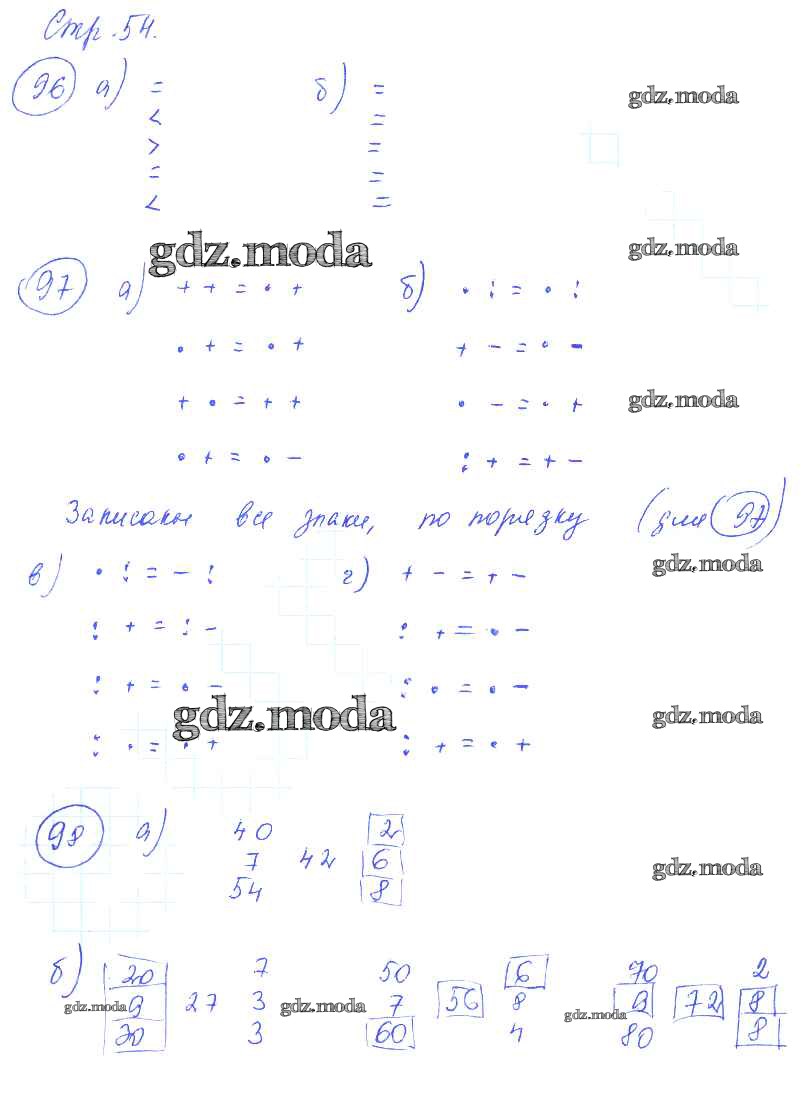 Стр. 54.
96 а) = б) =
< =
> =
= =
< =
gdz.moda
gdz.moda
gdz.moda
97 а) + + = · + б) · : = · :
· + = · + + - = · -
+ · = + + · - = · +
gdz.moda
· + = · - : + = + -
Записаны все знаки, по порядку (для 97)
gdz.moda
в) · : = - : г) + - = + -
: + = : - : + = · -
: + = · - : · = · -
gdz.moda
gdz.moda
: · = · + : + = · +
98 а) 40 2
7 42 6
54 8
gdz.moda
б) 20 7 50 6 70 2
9 27 3 7 56 8 9 72 8
gdz.moda gdz.moda gdz.moda
20 3 60 4 80 8